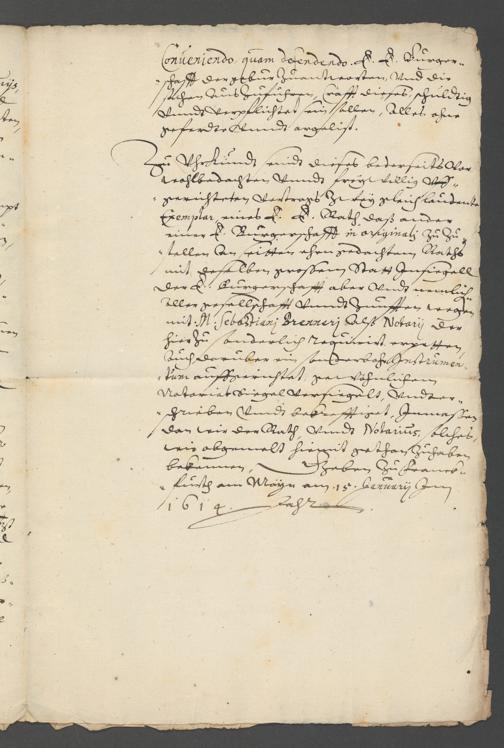 Conveniendo quam defendendo. E. E. Burger-
schafft der gebur zu antworten, Und die
sachen auszuführen, Crafft dieses schuldig
Unndt verpflichtet sein sollen, Alles ohne
geferdte Unndt argelist.
Zu Uhrkundt sindt dieses beederseits
wohlbedachten Undt freywillig
gerichteten Vertrags zwey gleichlautende
Exemplar, eines E. E. Rath, das ander
einer E. Burgerschafft in originali zu zu-
stellen an seitten ehrngedachtem Raths
mit desselben grossem Statt Innsiegell
der E. Burgerschafft aber Undt
aller gesellschafft Unndt Zunfften wegen
mit M. Sebastiani Brenneri als Notarij der
hierzu sonderlich requirirt erpetten
auch darüber ein sonderbahr Instrumen-
tum auffgerichtet, gewöhnlichem
Notariat Siegel versiegelt, Undter-
schrieben Unndt bekrefftiget, Inmassen
dan wir der Rath, Unndt Notarius, solches,
wie abgemelt hiemit gethan zu haben
bekennen, Geben zu Franck-
furth am Mayn am 15. Januarij Im
1614. Jahr